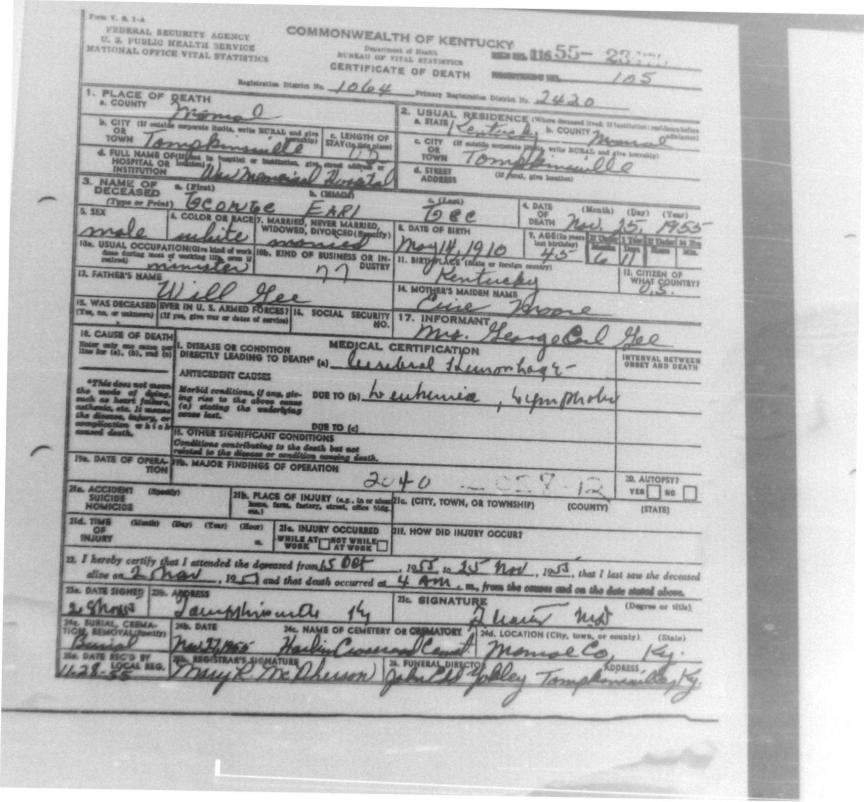 Form V. S. 1-A
FEDERAL SECURITY AGENCY
U. S. PUBLIC HEALTH SERVICE
NATIONAL OFFICE VITAL STATISTICS
COMMONWEALTH OF KENTUCKY
Department of Health
BUREAU OF VITAL STATISTICS
CERTIFICATE OF DEATH
116 55-
105
Registration District No. 1064 Primary Registration District No. 2420
1. PLACE OF DEATH
a. COUNTY Monroe
2. USUAL RESIDENCE (Where deceased lived. If institution: residence before admission)
a. STATE Kentucky b. COUNTY Monroe
b. CITY (If outside corporate limits, write RURAL and give township)
OR
TOWN Tompkinsville
c. LENGTH OF
STAY (in this place)
c. CITY (If outside corporate limits, write RURAL and give township)
OR
TOWN Tompkinsville
d. FULL NAME OF (If not in hospital or institution, give street address or location)
HOSPITAL OR
INSTITUTION War Memorial Hospital
d. STREET (If rural, give location)
ADDRESS
3. NAME OF
DECEASED
(Type or Print)
a. (First) b. (Middle) c. (Last)
George Earl Gee
4. DATE
OF
DEATH
(Month) (Day) (Year)
Nov. 25, 1955
5. SEX
male
6. COLOR OR RACE
white
7. MARRIED, NEVER MARRIED,
WIDOWED, DIVORCED (Specify)
married
8. DATE OF BIRTH
May 14, 1910
9. AGE (In years last birthday)
45
If Under 1 Year
Months Days
6 11
If Under 24 Hrs
Hours Min.
10a. USUAL OCCUPATION (Give kind of work done during most of working life, even if retired)
minister
10b. KIND OF BUSINESS OR INDUSTRY
11. BIRTHPLACE (State or foreign country)
Kentucky
12. CITIZEN OF
WHAT COUNTRY?
U.S.
13. FATHER'S NAME
Will Gee
14. MOTHER'S MAIDEN NAME
Moore
15. WAS DECEASED EVER IN U. S. ARMED FORCES?
(Yes, no, or unknown) (If yes, give war or dates of service)
16. SOCIAL SECURITY
NO.
17. INFORMANT
Mrs. George Earl Gee
18. CAUSE OF DEATH
Enter only one cause per line for (a), (b), and (c)
MEDICAL CERTIFICATION
INTERVAL BETWEEN
ONSET AND DEATH
I. DISEASE OR CONDITION
DIRECTLY LEADING TO DEATH* (a) Cerebral Hemorrhage
*This does not mean the mode of dying, such as heart failure, asthenia, etc. It means the disease, injury, or complication which caused death.
ANTECEDENT CAUSES
Morbid conditions, if any, giving rise to the above cause (a) stating the underlying cause last.
DUE TO (b) Leukemia, Lymphatic
DUE TO (c)
II. OTHER SIGNIFICANT CONDITIONS
Conditions contributing to the death but not related to the disease or condition causing death.
19a. DATE OF OPERATION
19b. MAJOR FINDINGS OF OPERATION
2040
20. AUTOPSY?
YES NO
21a. ACCIDENT (Specify)
SUICIDE
HOMICIDE
21b. PLACE OF INJURY (e.g., in or about home, farm, factory, street, office bldg. etc.)
21c. (CITY, TOWN, OR TOWNSHIP) (COUNTY) (STATE)
21d. TIME (Month) (Day) (Year) (Hour)
OF
INJURY m.
21e. INJURY OCCURRED
WHILE AT WORK NOT WHILE AT WORK
21f. HOW DID INJURY OCCUR?
22. I hereby certify that I attended the deceased from 15 Oct, 1955 to 25 Nov, 1955, that I last saw the deceased
alive on, 195 and that death occurred at 4 AM. m., from the causes and on the date stated above.
23a. DATE SIGNED
23b. ADDRESS
Tompkinsville Ky
23c. SIGNATURE (Degree or title)
MD
24a. BURIAL, CREMATION, REMOVAL (Specify)
Burial
24b. DATE
Nov 27, 1955
24c. NAME OF CEMETERY OR CREMATORY
24d. LOCATION (City, town, or county) (State)
Monroe Co, Ky.
25a. DATE REC'D BY
LOCAL REG.
11-28-55
25b. REGISTRAR'S SIGNATURE
Mary R McPherson
26. FUNERAL DIRECTOR ADDRESS
Yokley Tompkinsville, Ky.